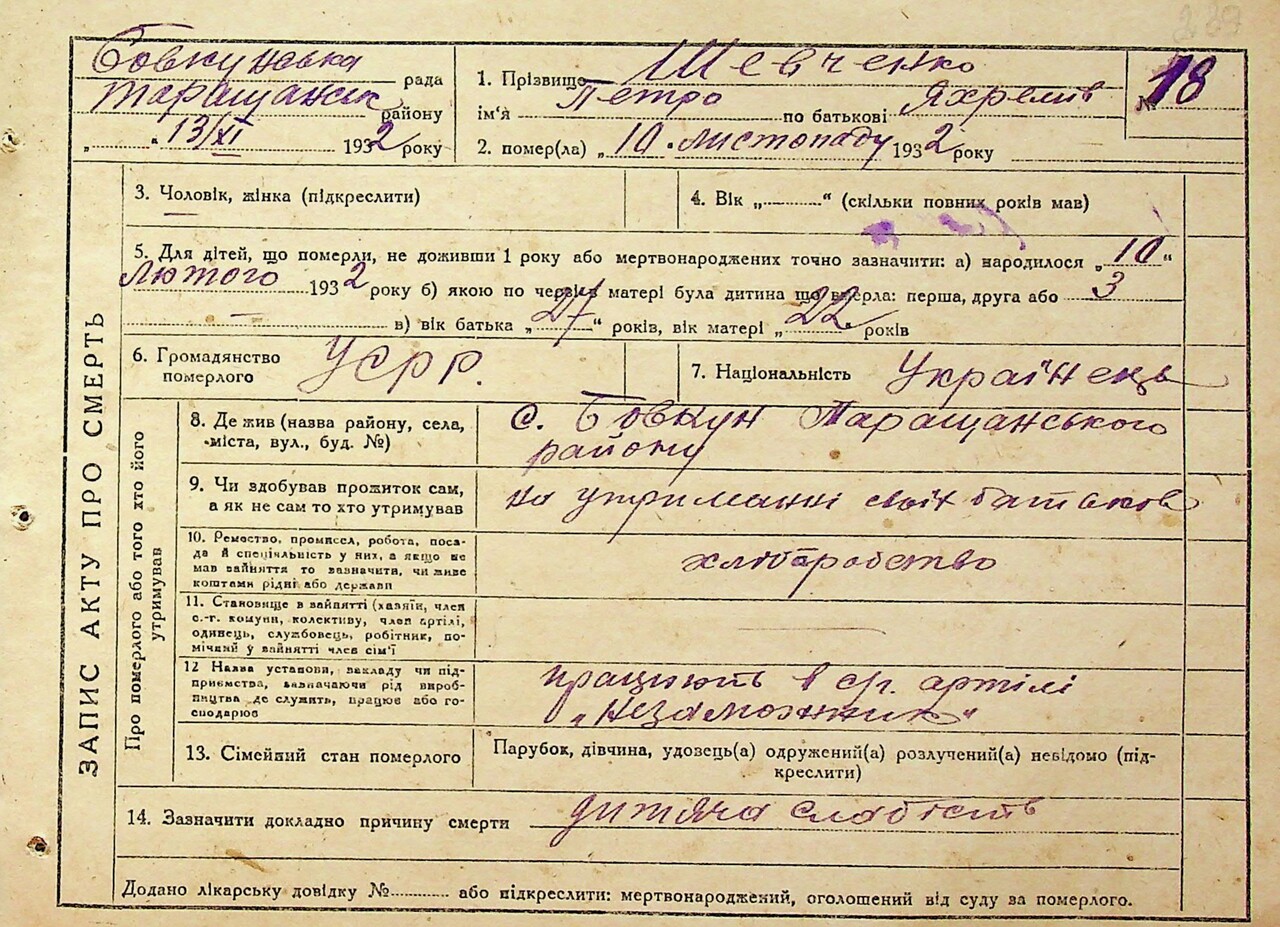 239
Бовкунська рада
Таращанськ району
„ " 13/XI 1932 року
1. Прізвище Шевченко
ім'я Петро по батькові
2. помер(ла) „10" листопаду 1932 року
№ 18
ЗАПИС АКТУ ПРО СМЕРТЬ
3. Чоловік, жінка (підкреслити)
4. Вік „ " (скільки повних років мав)
5. Для дітей, що померли, не доживши 1 року або мертвонароджених точно зазначити: а) народилося „10"
Лютого 1932 року б) якою по черзі в матері була дитина що вмерла: перша, друга або 3
— в) вік батька „27" років, вік матері „22" років
6. Громадянство
померлого
УСРР.
7. Національність Українець
Про померлого або того хто його
утримував
8. Де жив (назва району, села,
міста, вул., буд. №)
с. Бовкун Таращанського
району
9. Чи здобував прожиток сам,
а як не сам то хто утримував
на утриманні своїх батьков
10. Ремество, промисел, робота, поса-
да й спеціяльність у них, а якщо не
мав зайняття то зазначити, чи живе
коштами рідні або держави
хліборобство
11. Становище в зайнятті (хазяїн, член
с.-г. комуни, колективу, член артілі,
одинець, службовець, робітник, по-
мічний у зайнятті член сім'ї
—
12 Назва установи, закладу чи під-
приємства, зазначаючи рід вироб-
ництва де служить, працює або го-
сподарює
працюють в ср. артілі
„Незаможник"
13. Сімейний стан померлого
Парубок, дівчина, удовець(а) одружений(а) розлучений(а) невідомо (під-
креслити)
14. Зазначити докладно причину смерти дитяча слабість
Додано лікарську довідку № або підкреслити: мертвонароджений, оголошений від суду за померлого.